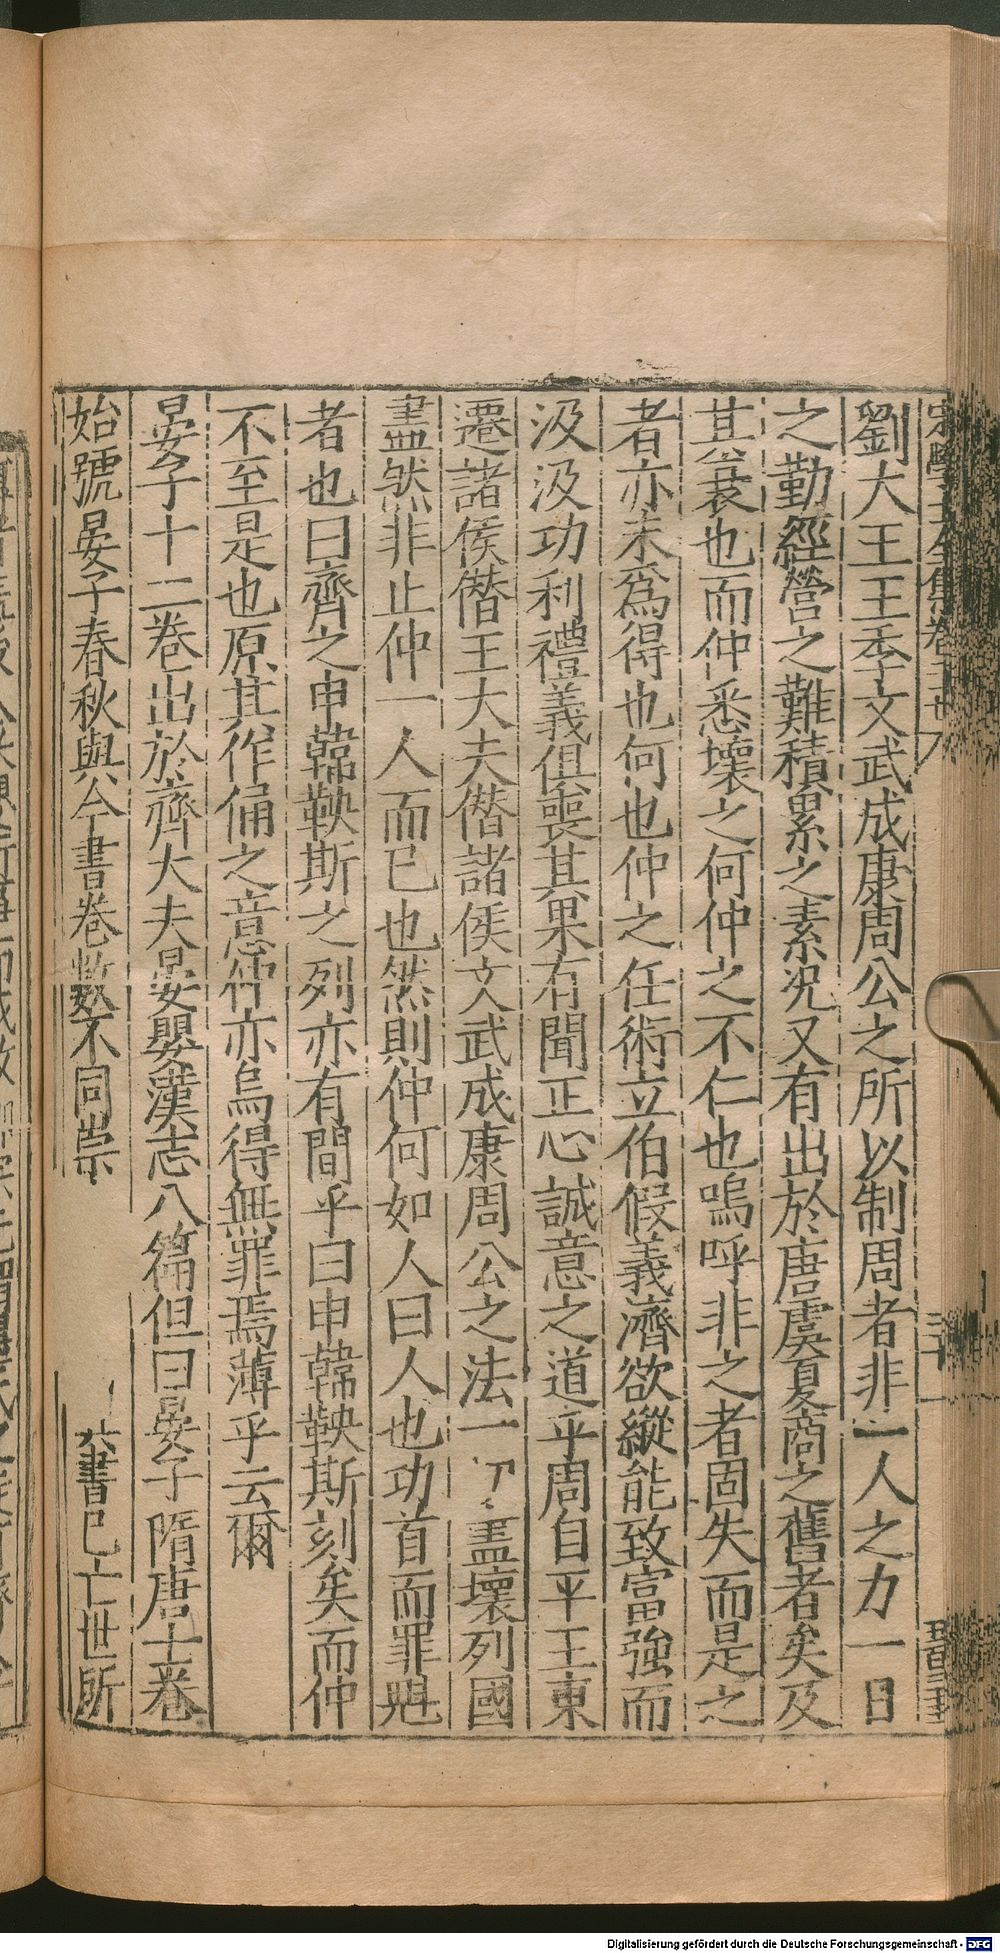 劉大王王季文武成康周公之所以制周者非一人之力一日
之勤經營之難積累之素況又有出於唐虞夏商之舊者矣及
其衰也而仲悉壞之何仲之不仁也嗚呼非之者固失而是之
者亦未爲得也何也仲之任術立伯假義濟欲縱能致富強而
汲汲功利禮義俱喪其果有聞正心誠意之道乎周自平王東
遷諸侯僭王大夫僭諸侯文武成康周公之法一切盡壞列國
盡然非止仲一人而已也然則仲何如人曰人也功首而罪魁
者也曰齊之申韓鞅斯之列亦有間乎曰申韓鞅斯刻矣而仲
不至是也原其作俑之意仲亦烏得無罪焉薄乎云爾
晏子十二卷出於齊大夫晏嬰漢志八篇但曰晏子隋唐七卷
始號晏子春秋與今書卷數不同崇
書已亡世所
Digitalisierung gefördert durch die Deutsche Forschungsgemeinschaft - DFG